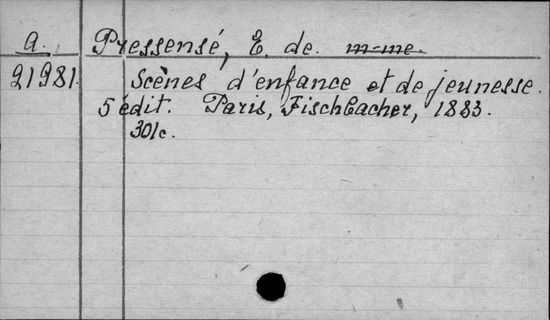 a. Pressensé, E. de. m-me.
21981. Scènes d'enfance et de jeunesse.
5 édit. Paris, Fischbacher, 1883.
301c.